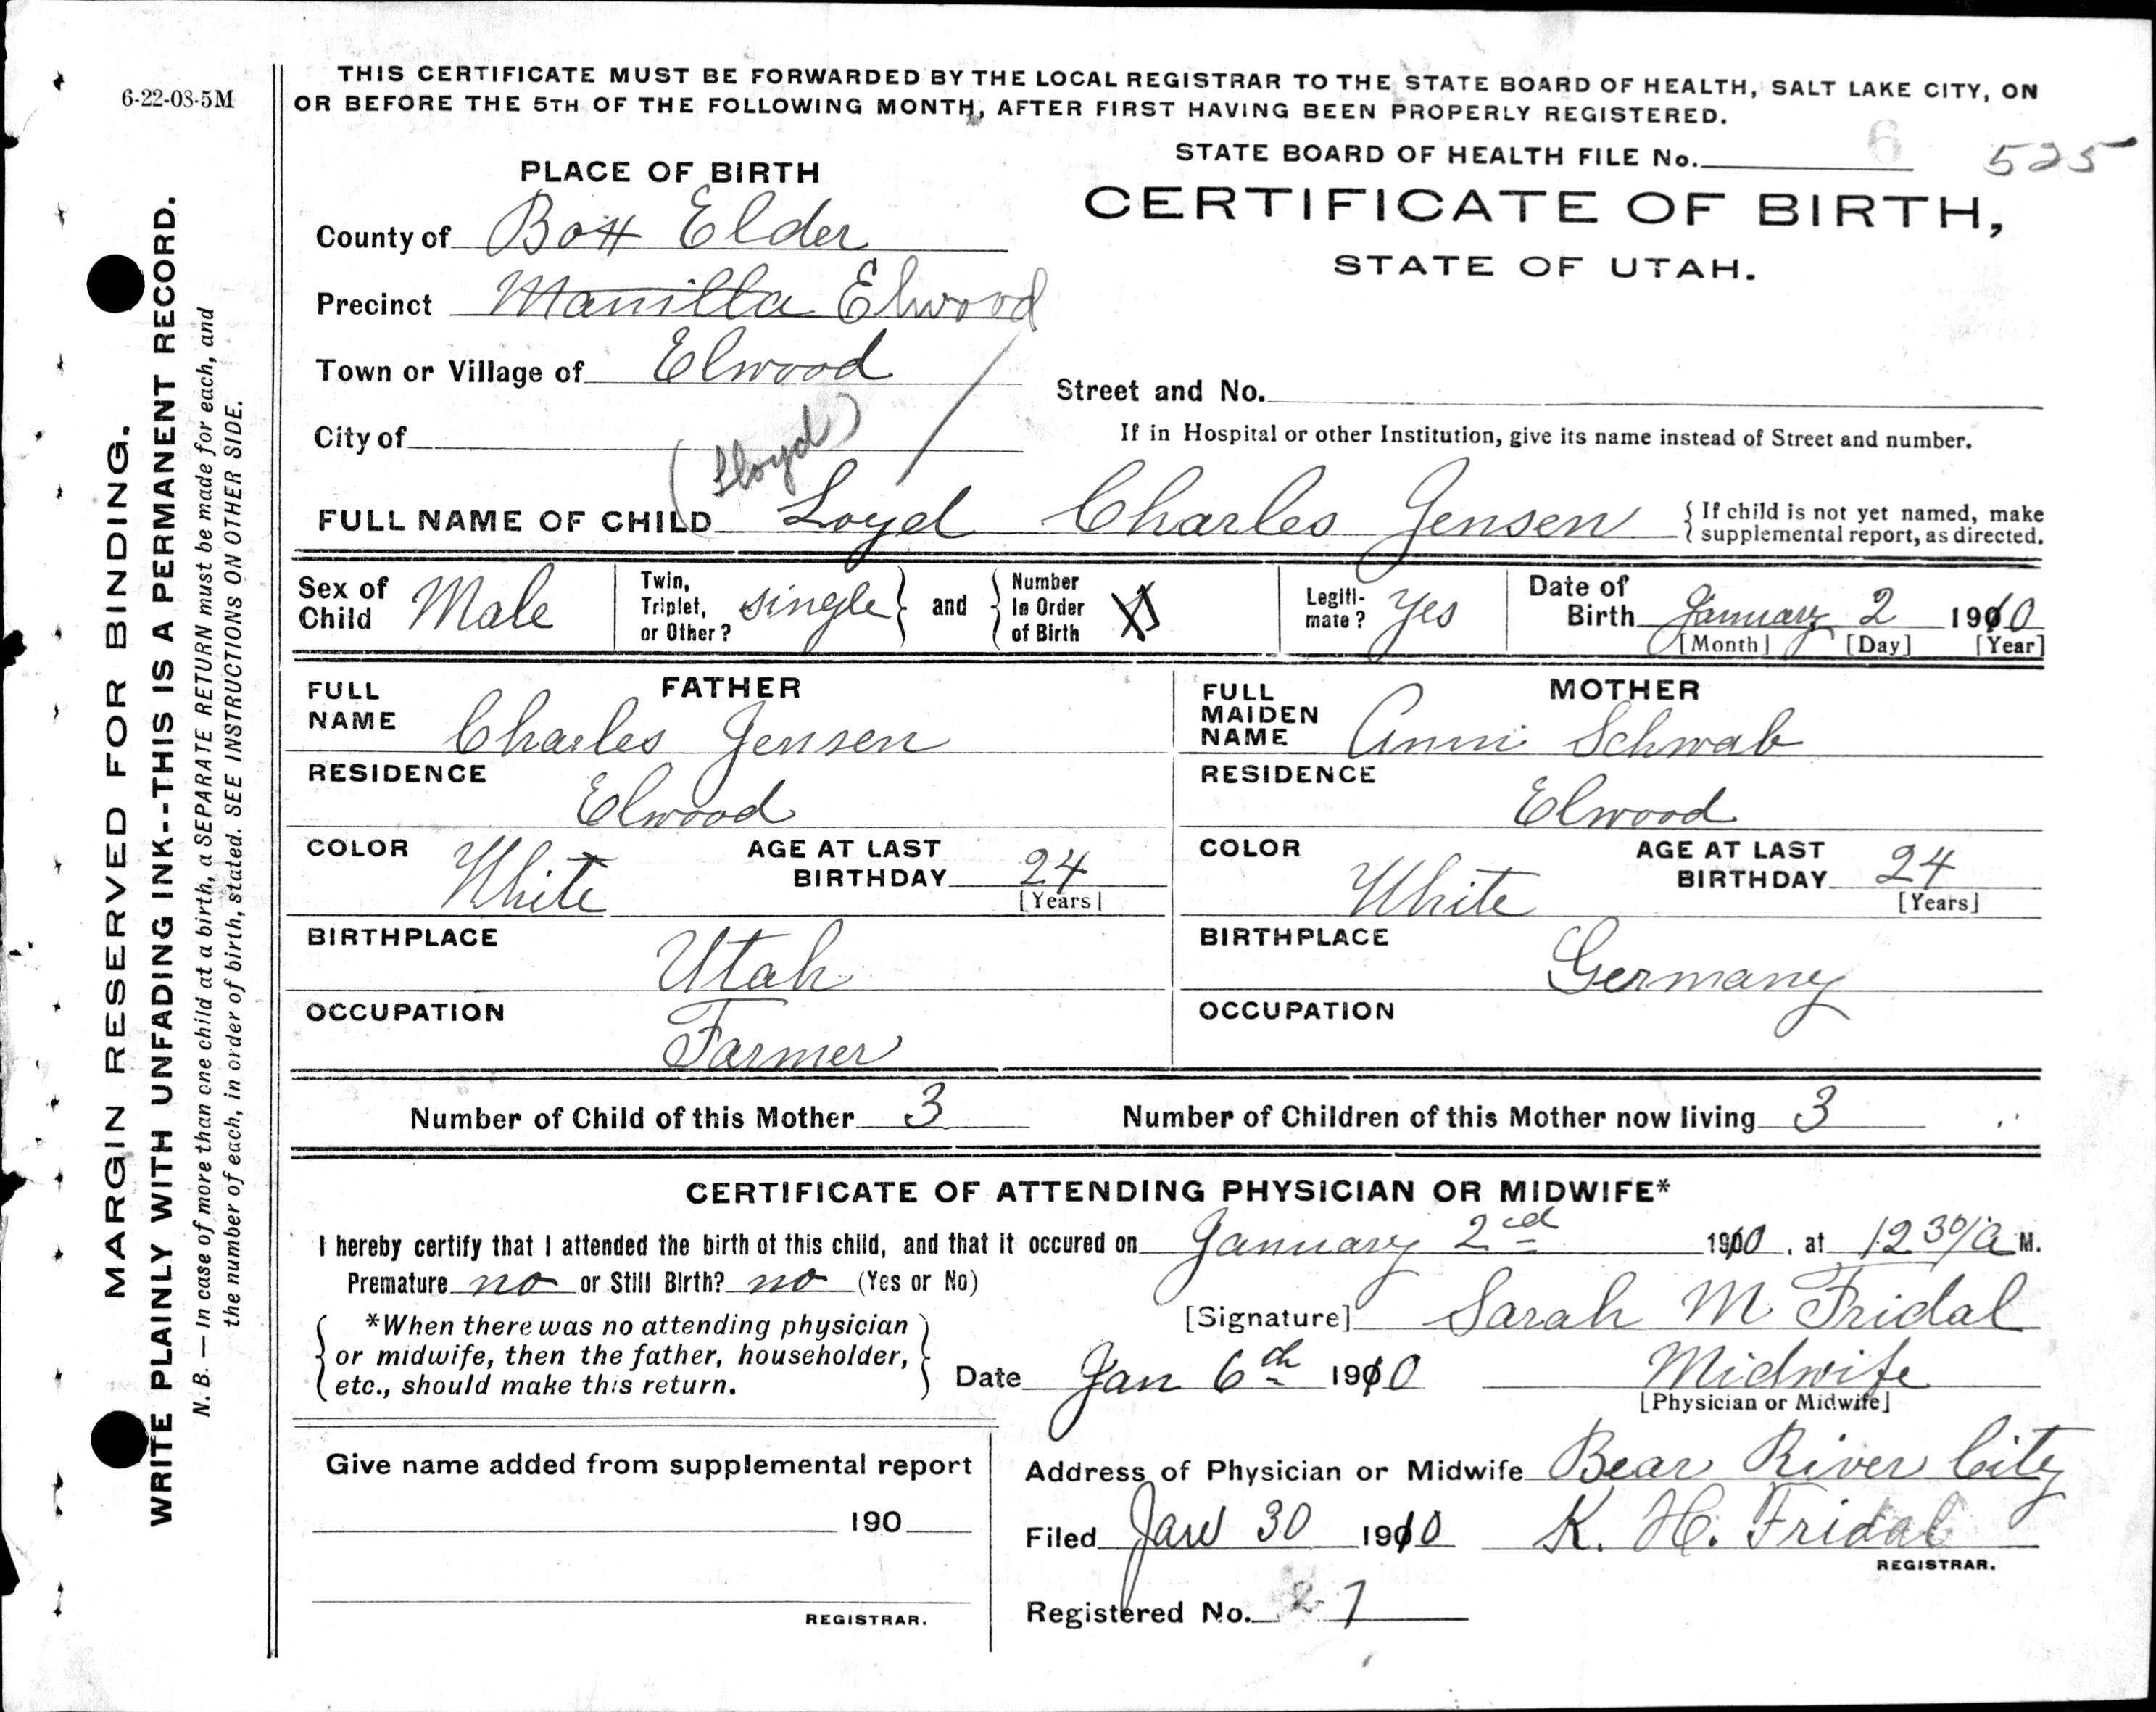 6-22-08-5M
THIS CERTIFICATE MUST BE FORWARDED BY THE LOCAL REGISTRAR TO THE STATE BOARD OF HEALTH, SALT LAKE CITY, ON
OR BEFORE THE 5TH OF THE FOLLOWING MONTH, AFTER FIRST HAVING BEEN PROPERLY REGISTERED.
STATE BOARD OF HEALTH FILE No. 6 525
CERTIFICATE OF BIRTH,
STATE OF UTAH.
PLACE OF BIRTH
County of Box Elder
Precinct Manilla Elwood
Town or Village of Elwood
Street and No.
City of
If in Hospital or other Institution, give its name instead of Street and number.
(Lloyd)
FULL NAME OF CHILD Loyd Charles Jensen
{ If child is not yet named, make
supplemental report, as directed.
Sex of Child Male
Twin, Triplet, or Other? single } and { Number In Order of Birth
Legiti- mate? Yes
Date of Birth January 2 1910
[Month] [Day] [Year]
FATHER
FULL NAME Charles Jensen
RESIDENCE Elwood
COLOR White AGE AT LAST BIRTHDAY 24
[Years]
BIRTHPLACE Utah
OCCUPATION Farmer
MOTHER
FULL MAIDEN NAME Anni Schwab
RESIDENCE Elwood
COLOR White AGE AT LAST BIRTHDAY 24
[Years]
BIRTHPLACE Germany
OCCUPATION
Number of Child of this Mother 3 Number of Children of this Mother now living 3
CERTIFICATE OF ATTENDING PHYSICIAN OR MIDWIFE*
I hereby certify that I attended the birth of this child, and that it occured on January 2cd 1910, at 12 30/a M.
Premature no or Still Birth? no (Yes or No)
[Signature] Sarah M Fridal
{ *When there was no attending physician
or midwife, then the father, householder,
etc., should make this return. }
Date Jan 6th 1910 Midwife
[Physician or Midwife]
Give name added from supplemental report
190
REGISTRAR.
Address of Physician or Midwife Bear River City
Filed Jan 30 1910 K. H. Fridal
REGISTRAR.
Registered No. 7
MARGIN RESERVED FOR BINDING.
WRITE PLAINLY WITH UNFADING INK--THIS IS A PERMANENT RECORD.
N. B. — In case of more than one child at a birth, a SEPARATE RETURN must be made for each, and
the number of each, in order of birth, stated. SEE INSTRUCTIONS ON OTHER SIDE.